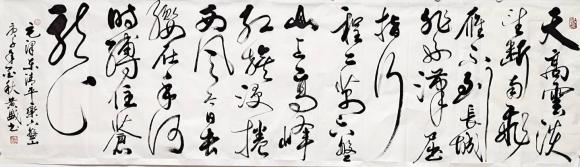 天高雲淡
望斷南飛
雁不到長城
非好漢屈
指行
程二萬六盤
山上高峰
紅旗漫捲
西風今日長
纓在手何
時縛住蒼
龍
毛澤東清平樂六盤山
庚子年秋書